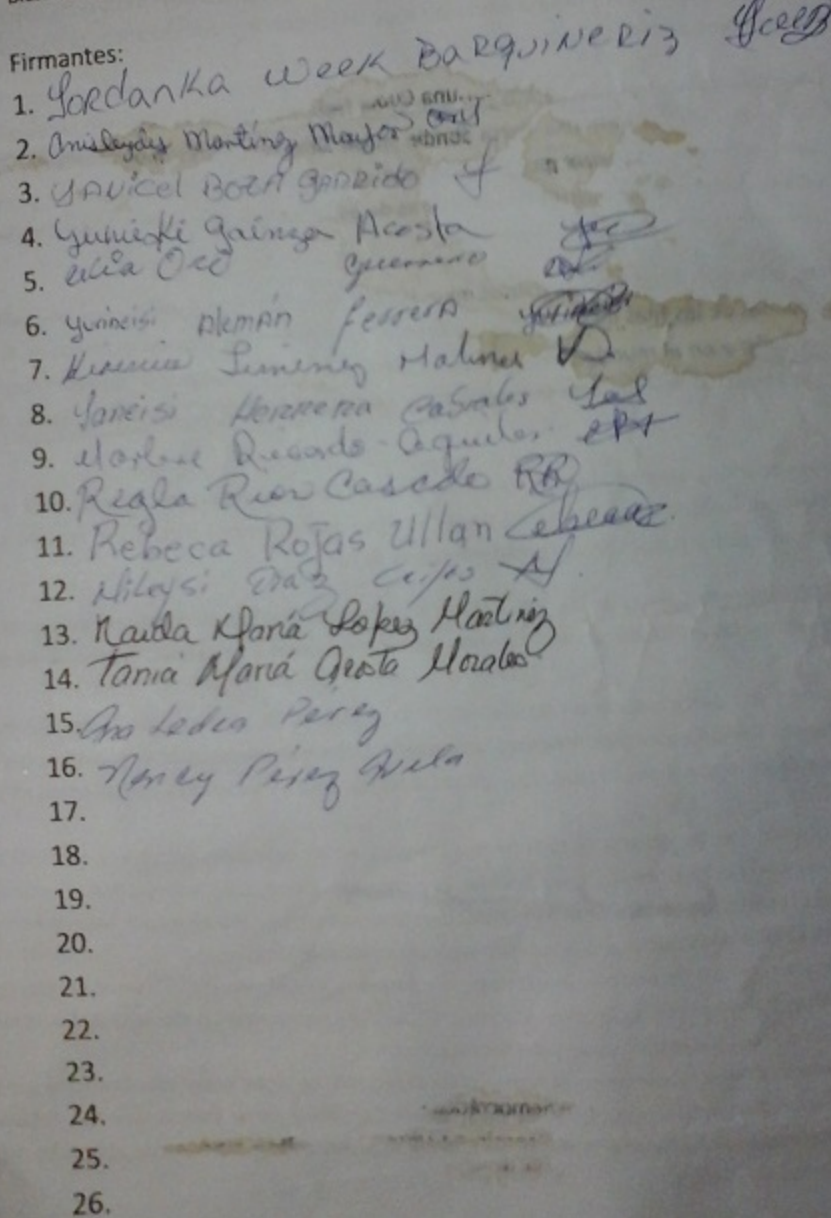 Firmantes:
1. Yordanka Week Barquineriz
2. Anisleydys Martinez Mayor
3. Yavicel Boza Garrido
4. Yumieski Gainza Acosta
5. Oro Guerrero
6. Yurineisi Alemán Ferrera
7. Jimenez Malina
8. Yaneisi Herrera Cabrales
9. Marlene Ricardo Aguiler
10. Regla Rios Cascedo RR
11. Rebeca Rojas Ullan
12. Mileysi Diaz
13. Naida María Lopez Martinez
14. Tania María Acosta Morales
15. Ana Ledea Perez
16. Nancy Pérez Avila
17.
18.
19.
20.
21.
22.
23.
24.
25.
26.